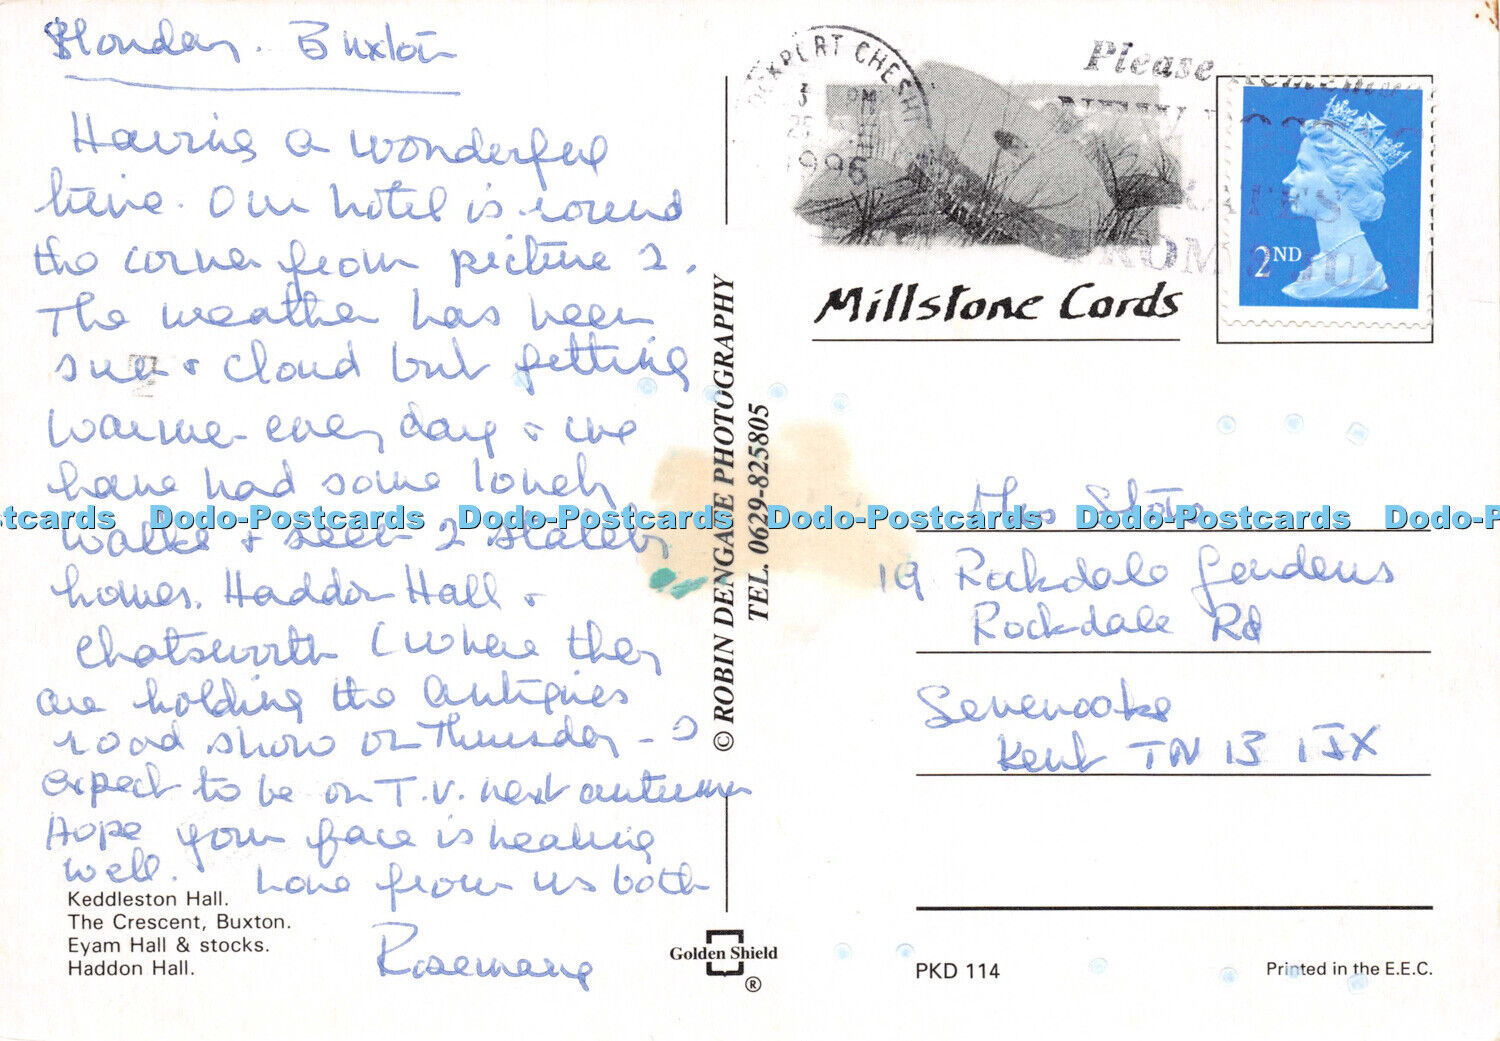 Monday. Buxton
Having a wonderful
time. Our hotel is round
the corner from picture 2.
The weather has been
sun & cloud but getting
warmer every day & we
have had some lovely
walks & seen 2 stately
homes. Haddon Hall &
Chatsworth (where they
are holding the Antiques
road show on Thursday - I
expect to be on T.V. next autumn
Hope your face is healing
well. Love from us both
Rosemary
Keddleston Hall.
The Crescent, Buxton.
Eyam Hall & stocks.
Haddon Hall.
© ROBIN DENGATE PHOTOGRAPHY
TEL. 0629-825805
Golden Shield
®
STOCKPORT CHESHIRE
PM
1996
Please Remember
NEW
RATES
FROM JULY
2ND
Millstone Cards
Mrs Stots
19 Rockdale Gardens
Rockdale Rd
Sevenoaks
Kent TN 13 1JX
PKD 114
Printed in the E.E.C.
Dodo-Postcards Dodo-Postcards Dodo-Postcards Dodo-Postcards